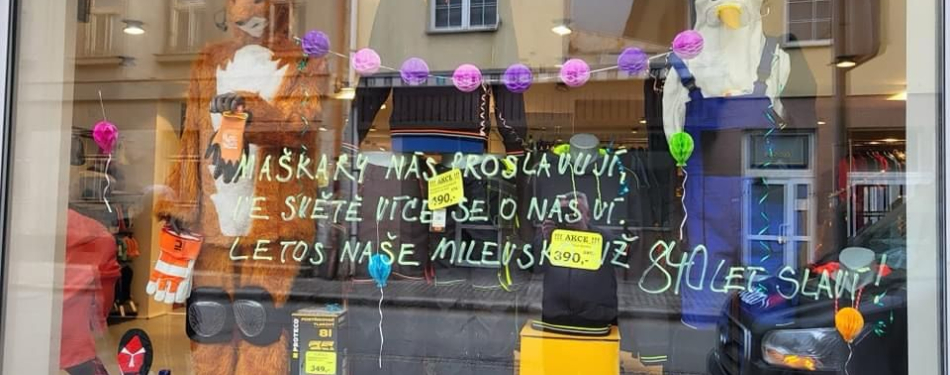 MAŠKARY NÁS PROSLAVUJÍ,
VE SVĚTĚ VÍCE SE O NÁS VÍ.
LETOS NAŠE MILEVSKO JIŽ 840 LET SLAVÍ!
!!! AKCE !!!
390,-
!!! AKCE !!!
390,-
PROTECO
8l
349,-